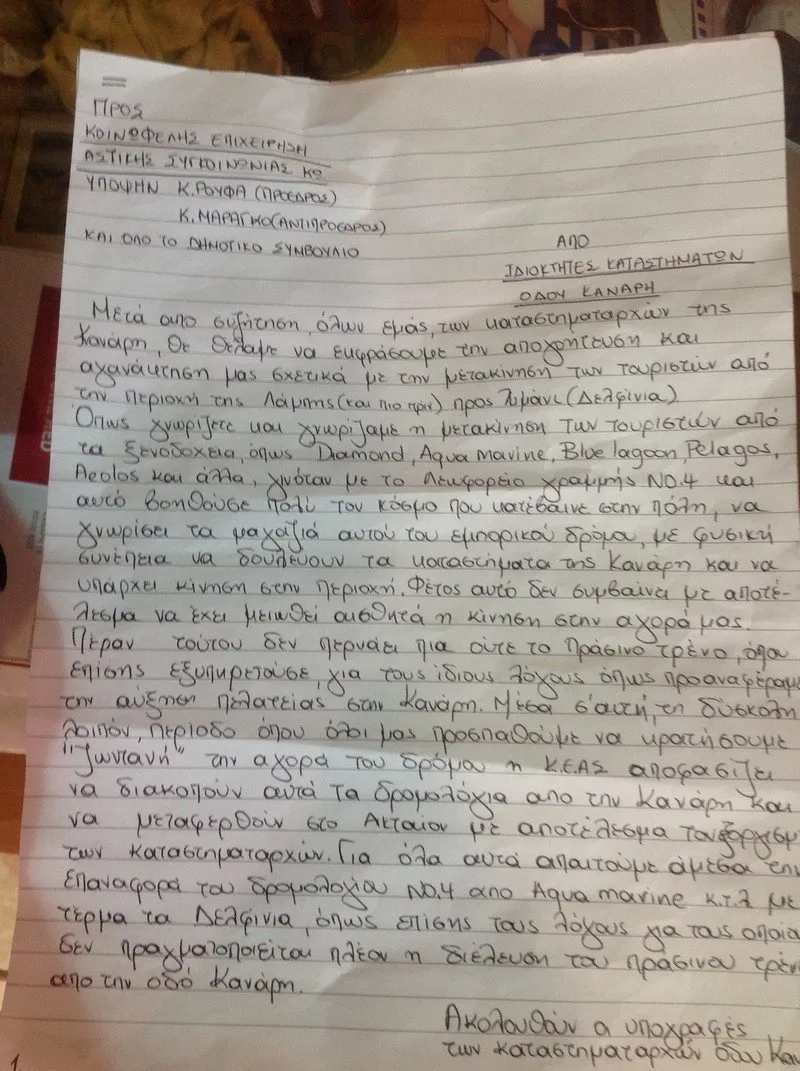 ΠΡΟΣ
ΚΟΙΝΩΦΕΛΗΣ ΕΠΙΧΕΙΡΗΣΗ
ΑΣΤΙΚΗΣ ΣΥΓΚΟΙΝΩΝΙΑΣ ΚΩ
ΥΠΟΨΗΝ Κ.ΡΟΥΦΑ (ΠΡΟΕΔΡΟΣ)
Κ.ΜΑΡΑΓΚΟ(ΑΝΤΙΠΡΟΕΔΡΟΣ)
ΚΑΙ ΟΛΟ ΤΟ ΔΗΜΟΤΙΚΟ ΣΥΜΒΟΥΛΙΟ
ΑΠΟ
ΙΔΙΟΚΤΗΤΕΣ ΚΑΤΑΣΤΗΜΑΤΩΝ
ΟΔΟΥ ΚΑΝΑΡΗ
Μετά απο συζήτηση, όλων εμάς, των καταστηματαρχών της
Κανάρη, Θε θέλαμε να εκφράσουμε την απογοήτευση και
αγανάκτηση μας σχετικά με την μετακίνηση των τουριστών από
την περιοχή της Λάμπης (και πιο πριν) προς λιμάνι (Δελφίνια)
Όπως γνωρίζετε και γνωρίζαμε η μετακίνηση των τουριστών από
τα ξενοδοχεία, όπως Diamond, Aqua marine, Blue lagoon, Pelagos,
Aeolos και άλλα, γινόταν με το λεωφορείο γραμμής NO.4 και
αυτό βοηθούσε πολύ τον κόσμο που κατέβαινε στην πόλη, να
γνωρίσει τα μαγαζιά αυτού του εμπορικού δρόμα, με φυσική
συνέπεια να δουλεύουν τα καταστήματα της Κανάρη και να
υπάρχει κίνηση στην περιοχή. Φέτος αυτό δεν συμβαίνει με αποτέ-
λεσμα να έχει μειωθεί αισθητά η κίνηση στην αγορά μας.
Πέραν τούτου δεν περνάει πια ούτε το πράσινο τρένο, όπου
επίσης εξυπηρετούσε, για τους ίδιους λόγους όπως προαναφέραμε
την αύξηση πελατείας στην Κανάρη. Μέσα σ'αυτή, τη δύσκολη
λοιπόν, περίοδο όπου όλοι μας προσπαθούμε να κρατήσουμε
"ζωντανή" την αγορά του δρόμου η Κ.Ε.ΑΣ αποφασίζει
να διακοπούν αυτά τα δρομολόγια απο την Κανάρη και
να μεταφερθούν στο Ακταίον με αποτέλεσμα τον
των καταστηματαρχών. Για όλα αυτά απαιτούμε άμεσα την
επαναφορά του δρομολογίου NO.4 απο Aqua marine κ.τ.λ με
τέρμα τα Δελφίνια, όπως επίσης τους λόγους για τους οποία
δεν πραγματοποιείται πλέον η διέλευση του πράσινου τρένο
απο την οδό Κανάρη.
Ακολουθούν α υπογραφές
των καταστηματαρχών οδου Καν
1